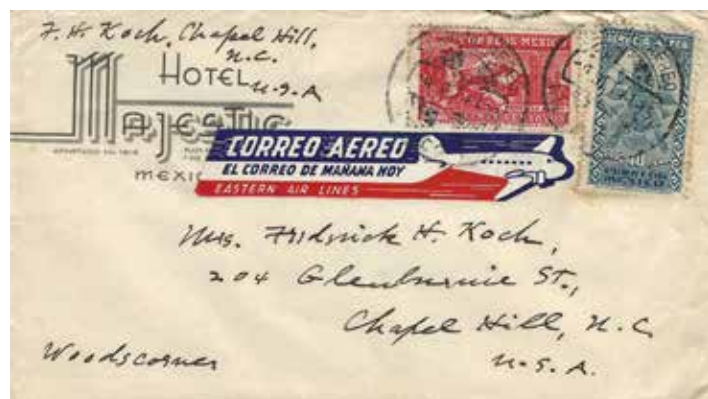 F. H. Koch, Chapel Hill,
N.C.
U.S.A
HOTEL
MAJESTIC
CORREOS MEXICO
CORREO AEREO
EL CORREO DE MAÑANA HOY
EASTERN AIR LINES
Mrs. Frederick H. Koch,
204 Glenburnie St.,
Chapel Hill, N.C.
U.S.A.
Woodscorner